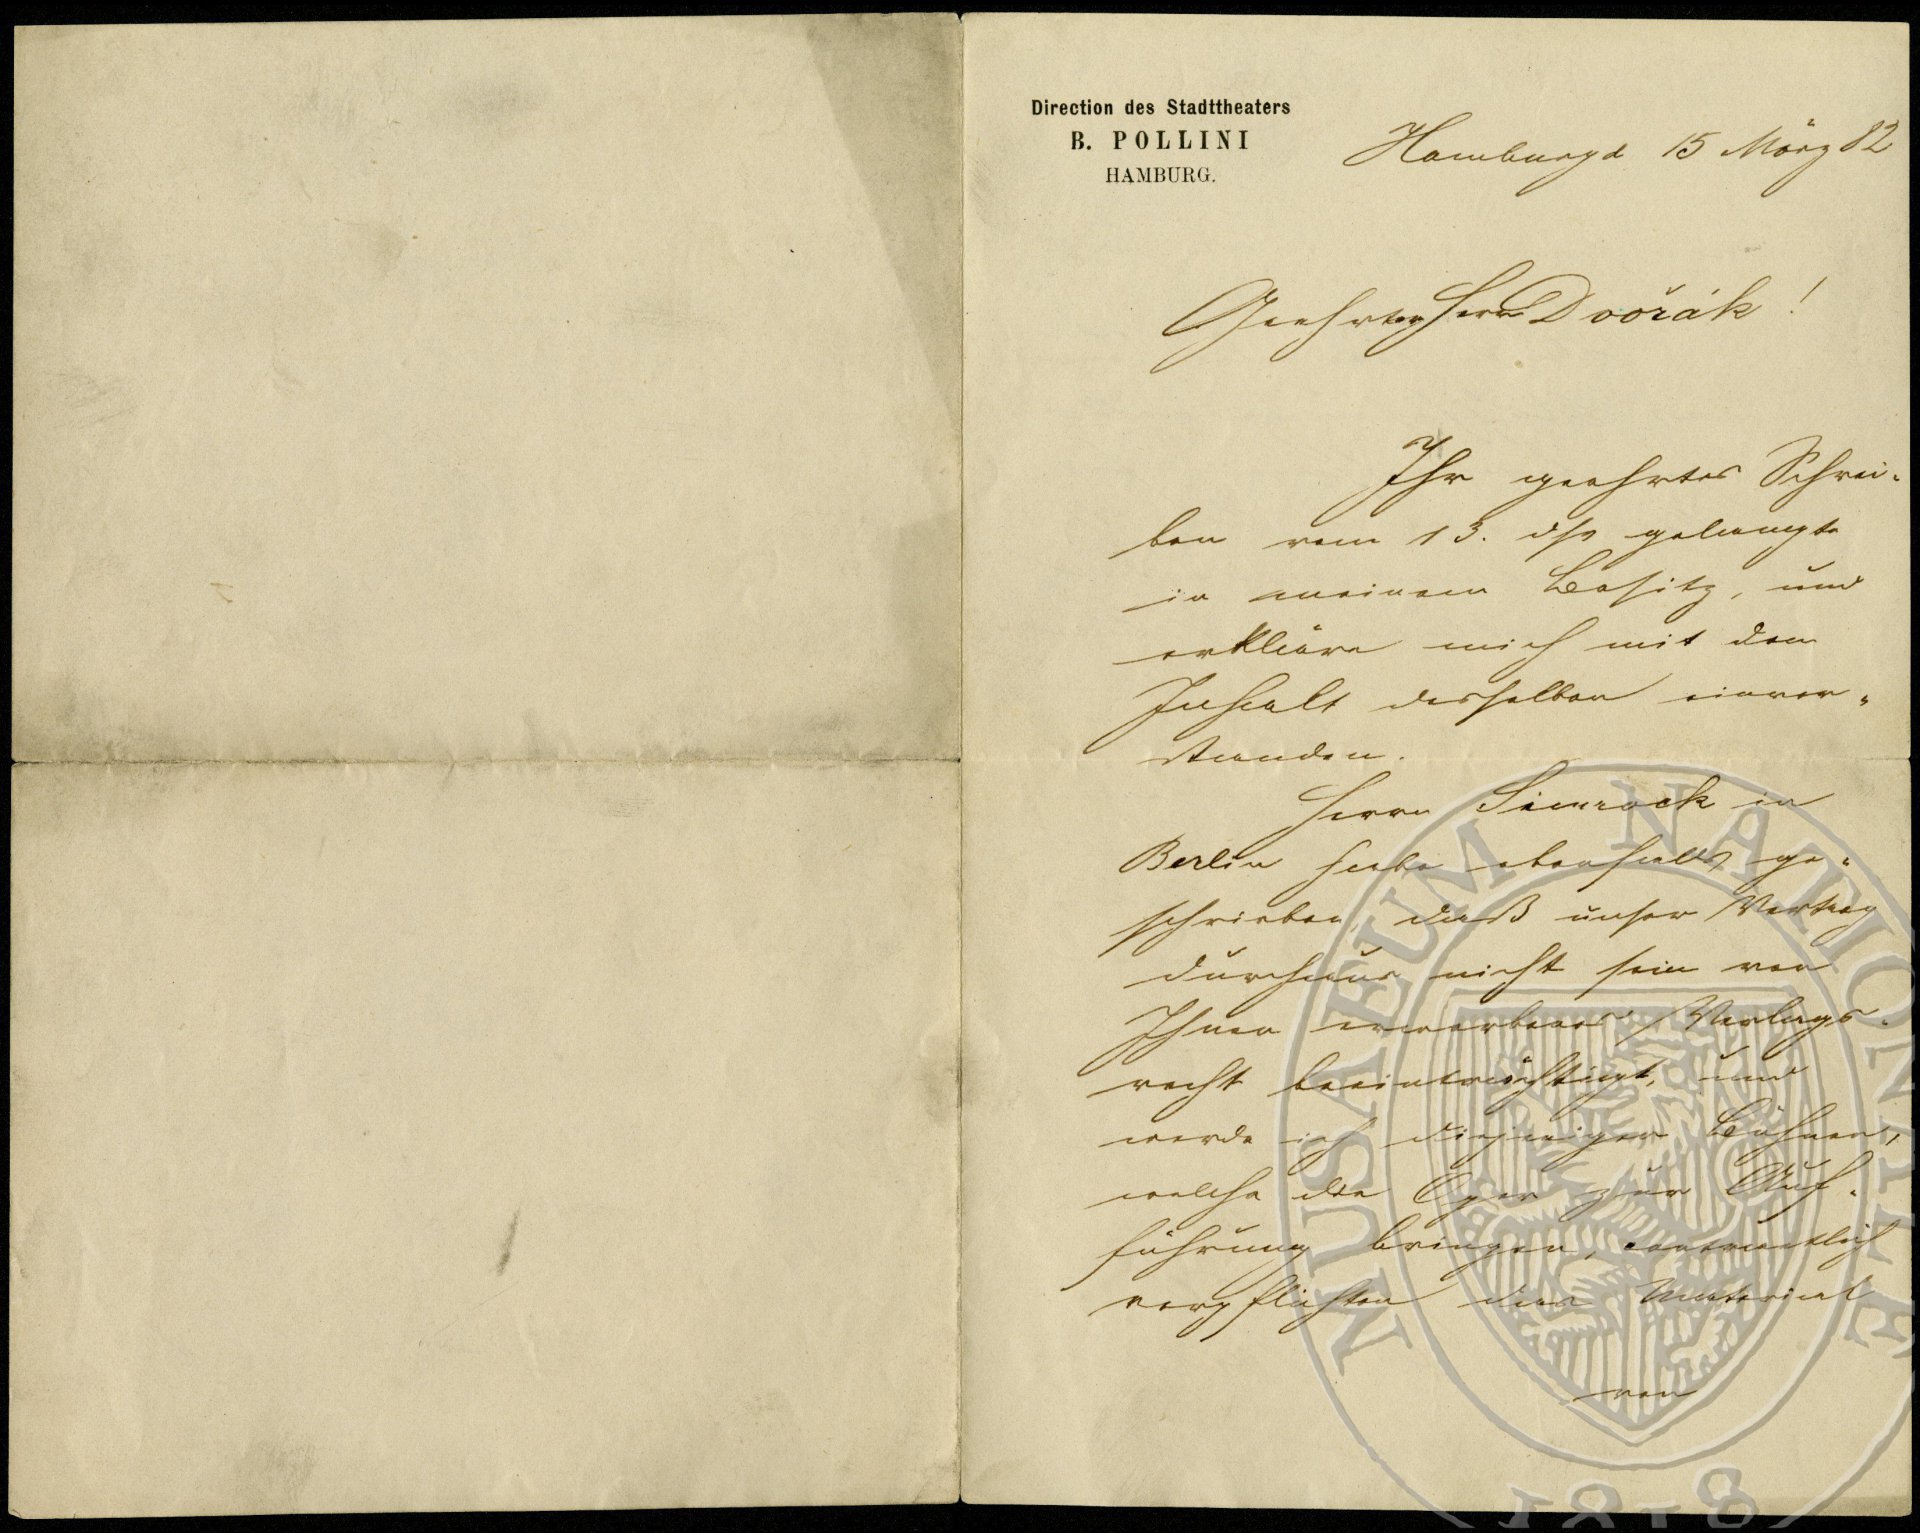 Direction des Stadttheaters
B. POLLINI
HAMBURG.
Hamburg d 15 März 82
Geehrter Herr Dvořák!
Ihr geehrtes Schrei-
ben vom 13. dss gelangte
in meinem Besitz, und
erkläre mich mit dem
Inhalt desselben einver-
standen.
Herrn Simrock in
Berlin habe ebenfalls ge-
schrieben, daß unser Vertrag
durchaus nicht sein von
Ihnen erworbenes Verlags-
recht beeinträchtigt, und
werde ich diejenigen Bühnen,
welche die Oper zur Auf-
führung bringen, contractlich
verpflichten das Material
von
MUSAEUM NATIONALE
1818